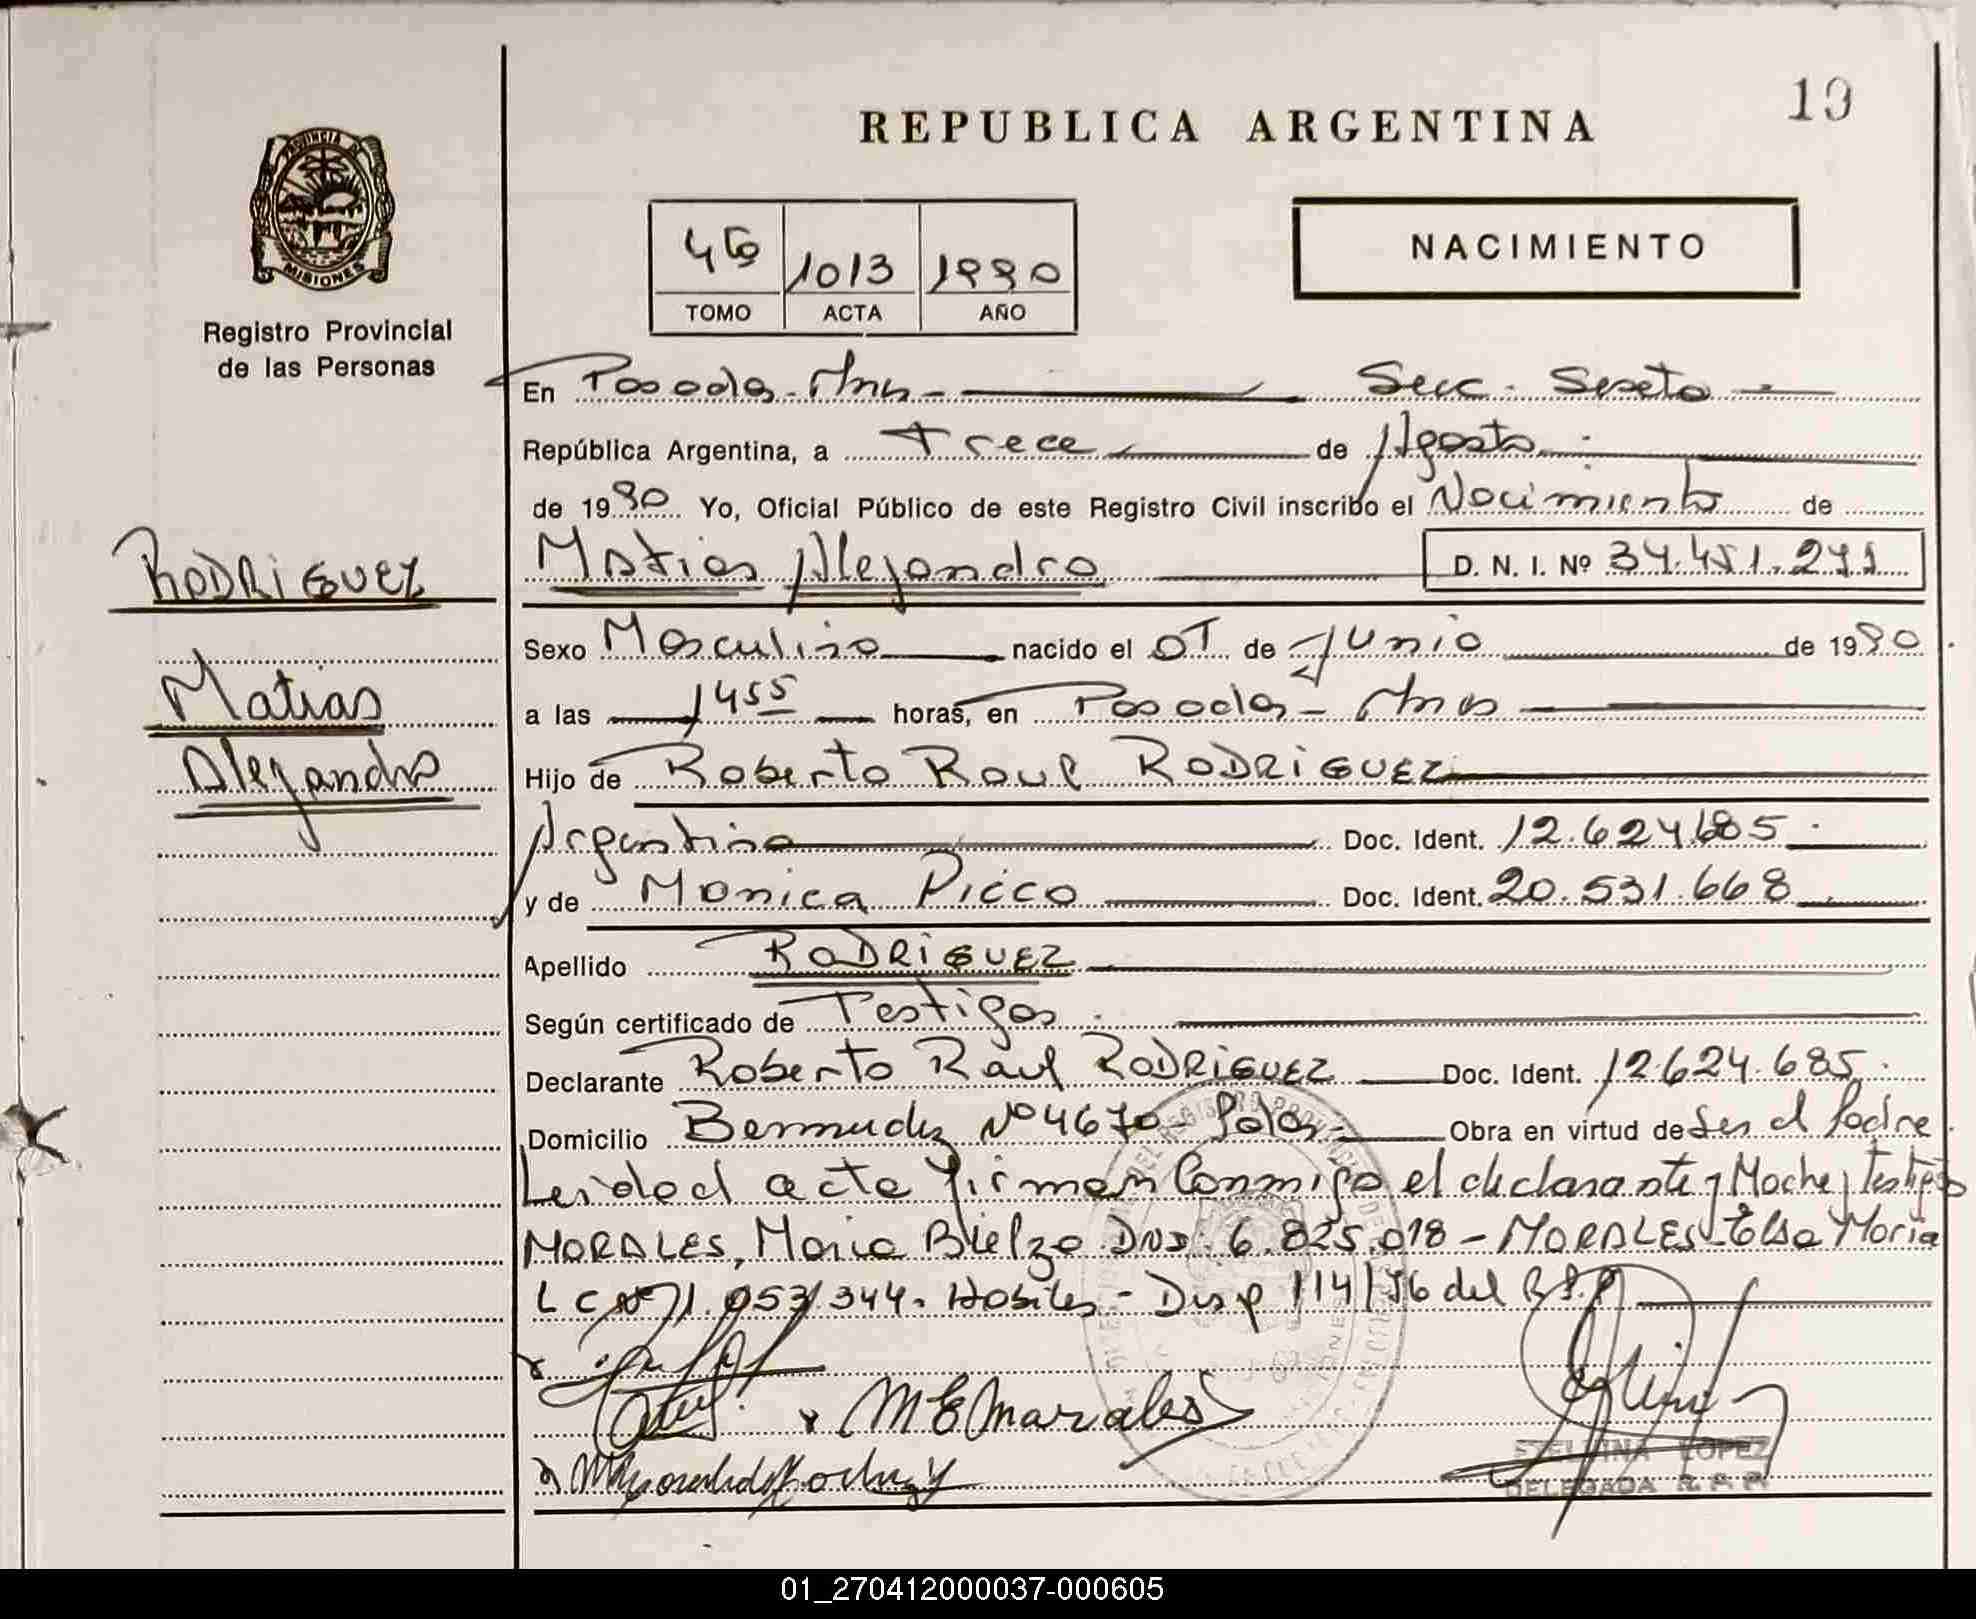 19
REPUBLICA ARGENTINA
PROVINCIA DE
MISIONES
Registro Provincial
de las Personas
1013 1990
TOMO ACTA AÑO
NACIMIENTO
En Posadas - Mnes - Secc. Sexta
República Argentina, a Trece de Agosto
de 1990 Yo, Oficial Público de este Registro Civil inscribo el Nacimiento de
RODRIGUEZ
Matias
Alejandro
Matias Alejandro D. N. I. Nº
Sexo Masculino nacido el 07 de Junio de 1990
a las 1455 horas, en Posadas - Mnes
Hijo de Roberto Raul RODRIGUEZ
Argentina Doc. Ident. 12.624.685
y de Monica Picco Doc. Ident. 20.531.668
Apellido RODRIGUEZ
Según certificado de Testigos
Declarante Roberto Raul RODRIGUEZ Doc. Ident. 12.624.685
Domicilio Bermudez Nº 4670 - Pdas - Obra en virtud de Ser el Padre
Leida el acta firman Conmigo el declarante y Madre y testigos
MORALES, Maria DNI. 6.825.018 - MORALES Elsa Maria
L C Nº 1.053.344. Habiles - Disp 114/86 del R.P.P
M E Morales
LOPEZ
DELEGADA R.P.P
01_270412000037-000605